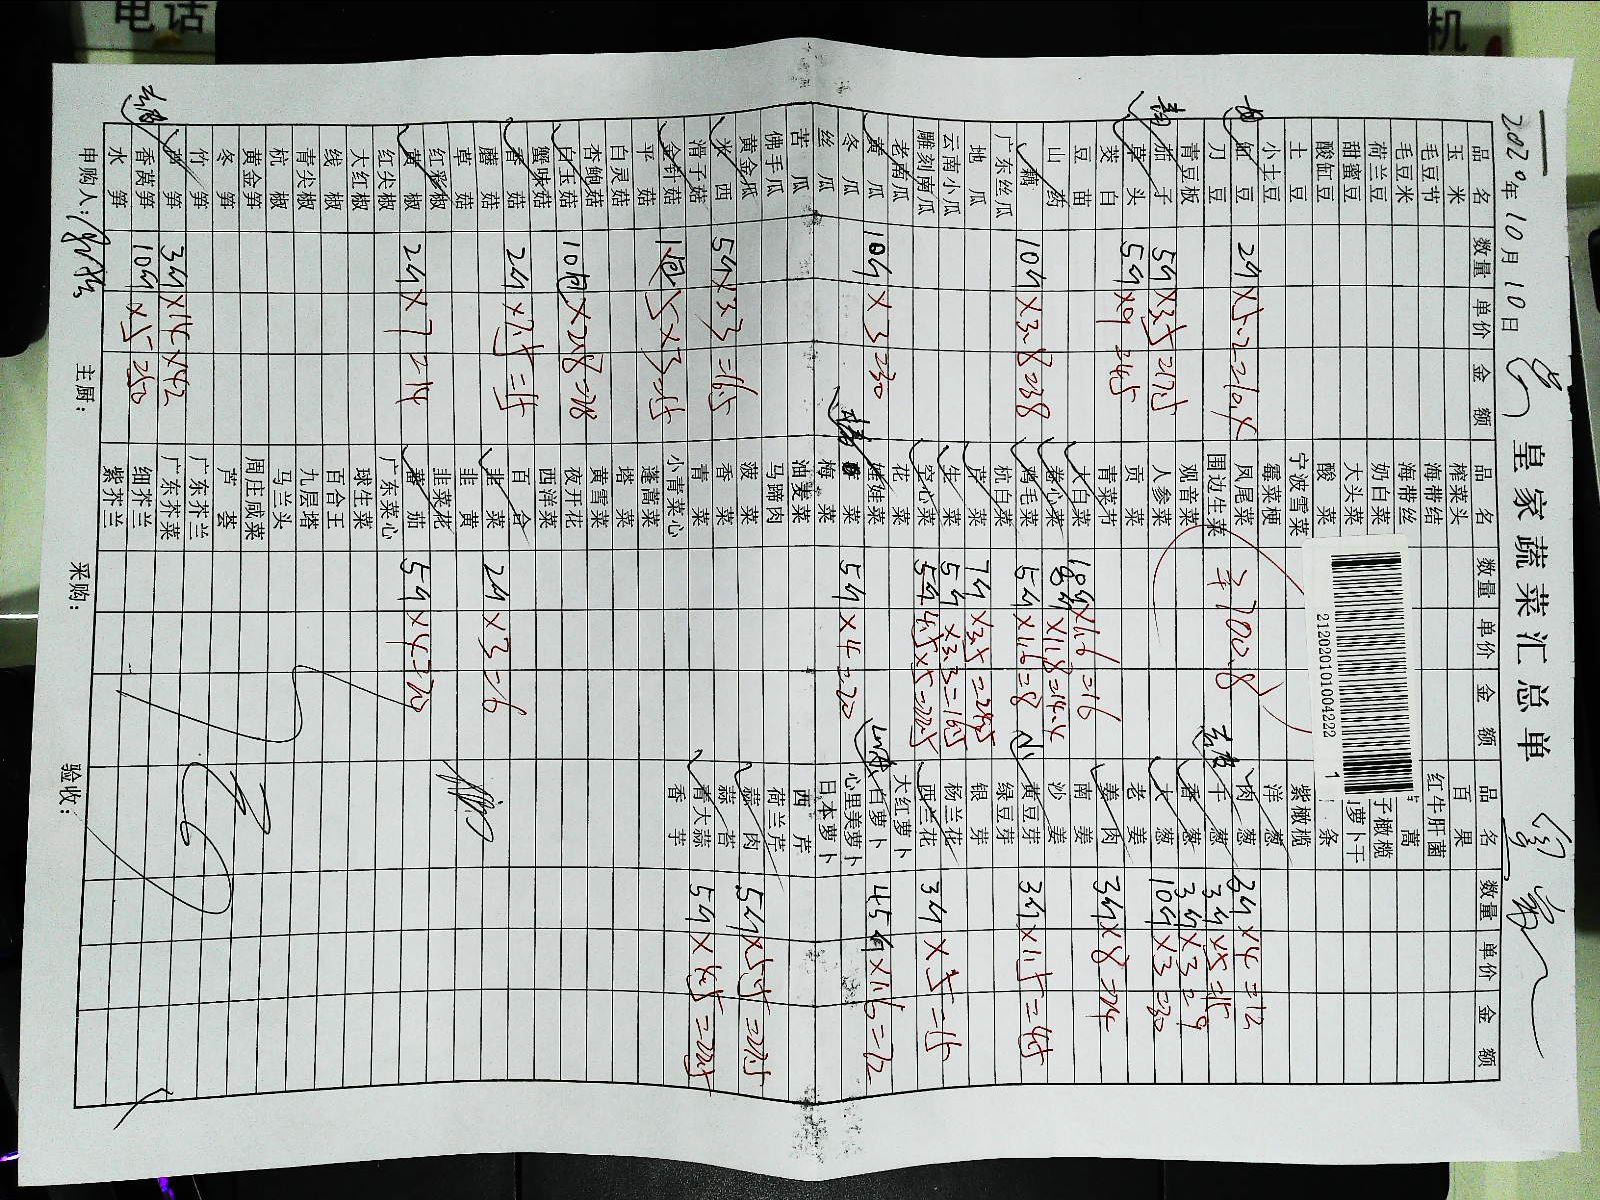 电话
机
皇家蔬菜汇总单
2020年10月10日
212020101004222 1
¥700.8
品名 数量 单价 金额 品名 数量 单价 金额 品名 数量 单价 金额
玉米 榨菜头 百果
毛豆节 海带结 红牛肝菌
毛豆米 海带丝 蒿
荷兰豆 奶白菜 子橄榄
甜蜜豆 大头菜 萝卜干
酸缸豆 酸菜 条
土豆 宁波雪菜 紫橄榄
小土豆 霉菜梗 洋葱
缸豆 2斤×5.2=10.4 凤尾菜 肉葱 3斤×4=12
刀豆 围边生菜 干葱 3斤×5=15
青豆板 观音菜 香葱 3斤×3=9
茄子 5斤×3.5=17.5 人参菜 大葱 10斤×3=30
草头 5斤×9=45 贡菜 老姜
茭白 青菜节 姜肉 3斤×8=24
豆苗 大白菜 10斤×1.6=16 南姜
山药 卷心菜 8斤×1.8=14.4 沙姜
藕 10斤×3.8=38 鸡毛菜 5斤×1.6=8 黄豆芽 3斤×1.5=4.5
广东丝瓜 杭白菜 绿豆芽
地瓜 芹菜 7斤×3.5=24.5 银芽
云南小瓜 生菜 5斤×3.3=16.5 杨兰花
雕刻南瓜 空心菜 5斤4.5×5=22.5 西兰花 3斤×5=15
老南瓜 花菜 大红萝卜
黄瓜 10斤×3=30 娃娃菜 白萝卜 45斤×1.6=72
冬瓜 青菜 5斤×4=20 心里美萝卜
丝瓜 梅菜 日本萝卜
苦瓜 油麦菜 西芹
佛手瓜 马蹄肉 荷兰芹
黄金瓜 菠菜 蒜肉 5斤×5.5=27.5
米西 5斤×3.3=16.5 香菜 蒜苔
滑子菇 青菜 青大蒜 5斤×4.5=22.5
金针菇 1包5×3=15 小青菜心 香芋
平菇 蓬蒿菜
白灵菇 塔菜
杏鲍菇 黄雪菜
白玉菇 10包×2.8=28 夜开花
蟹味菇 西洋菜
香菇 2斤×7.5=15 百合
蘑菇 韭菜 2斤×3=6
草菇 韭黄
红彩椒 韭菜花
黄椒 2斤×7=14 蕃茄 5斤×4=20
红尖椒 广东菜心
大红椒 球生菜
线椒 百合王
青尖椒 九层塔
杭椒 马兰头
黄金笋 周庄咸菜
冬笋 芦荟
竹笋 广东芥兰
笋 3斤×14=42 广东芥菜
香莴笋 10斤×5=50 细芥兰
水笋 紫芥兰
申购人: 主厨: 采购: 验收: